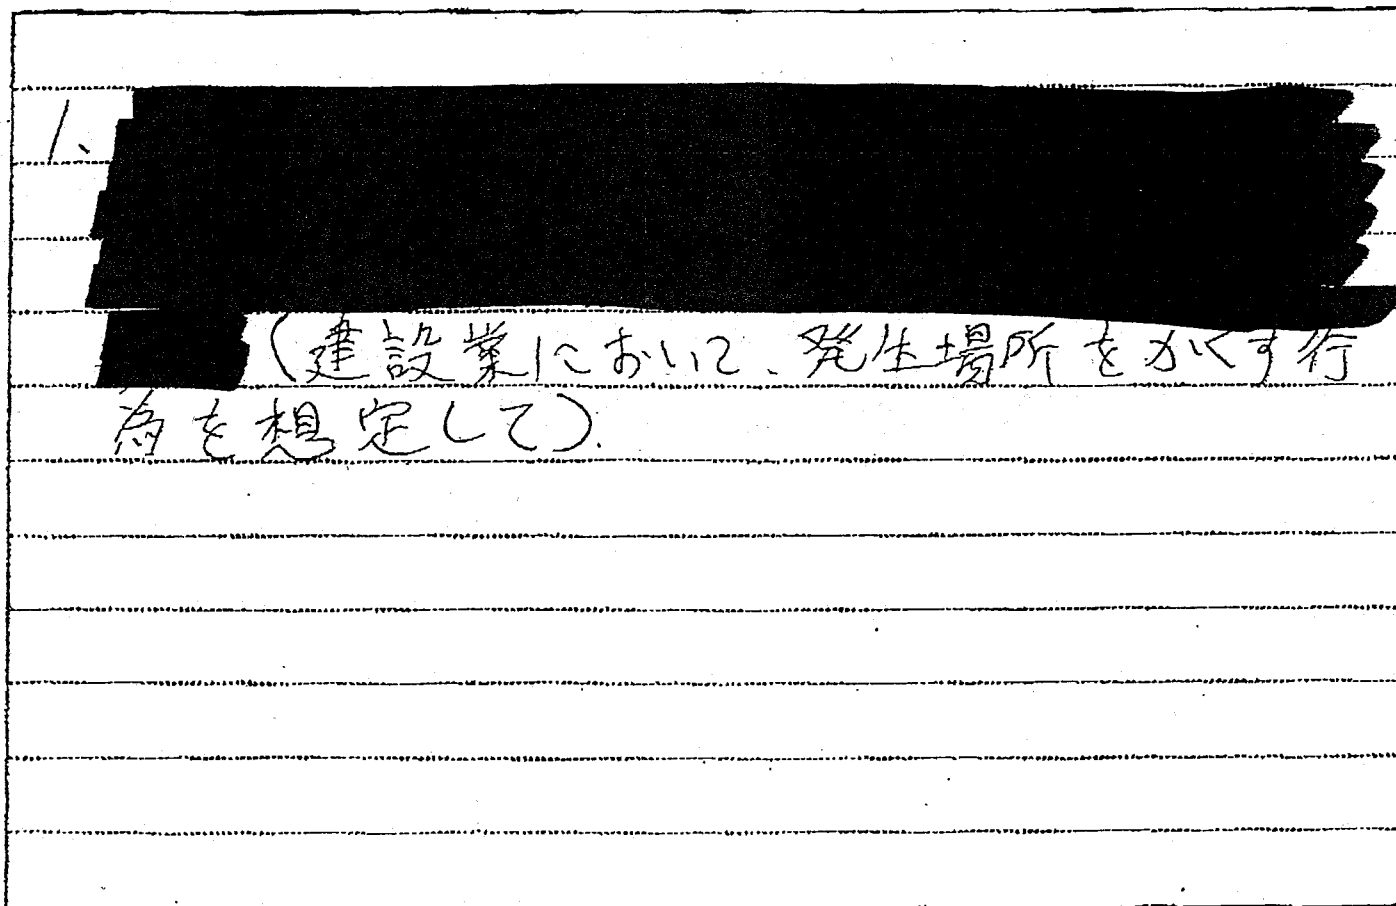 1、
(建設業において、発生場所をかくす行
為を想定して).